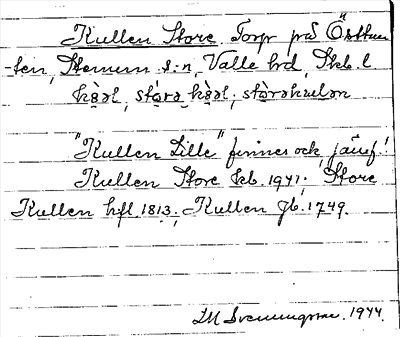 Kullen Store. Torp på Östtun-
-ten, Stemum s:n, Valle hd, Skb. l
kɜ̀əl, stòrə kɜəl, stòrəkuələn
"Kullen Lille" finnes ock, jämf.!
Kullen Store kb. 1941; Store
Kullen hfl 1813; Kullen jb. 1749.
LM Svenungsson. 1944.